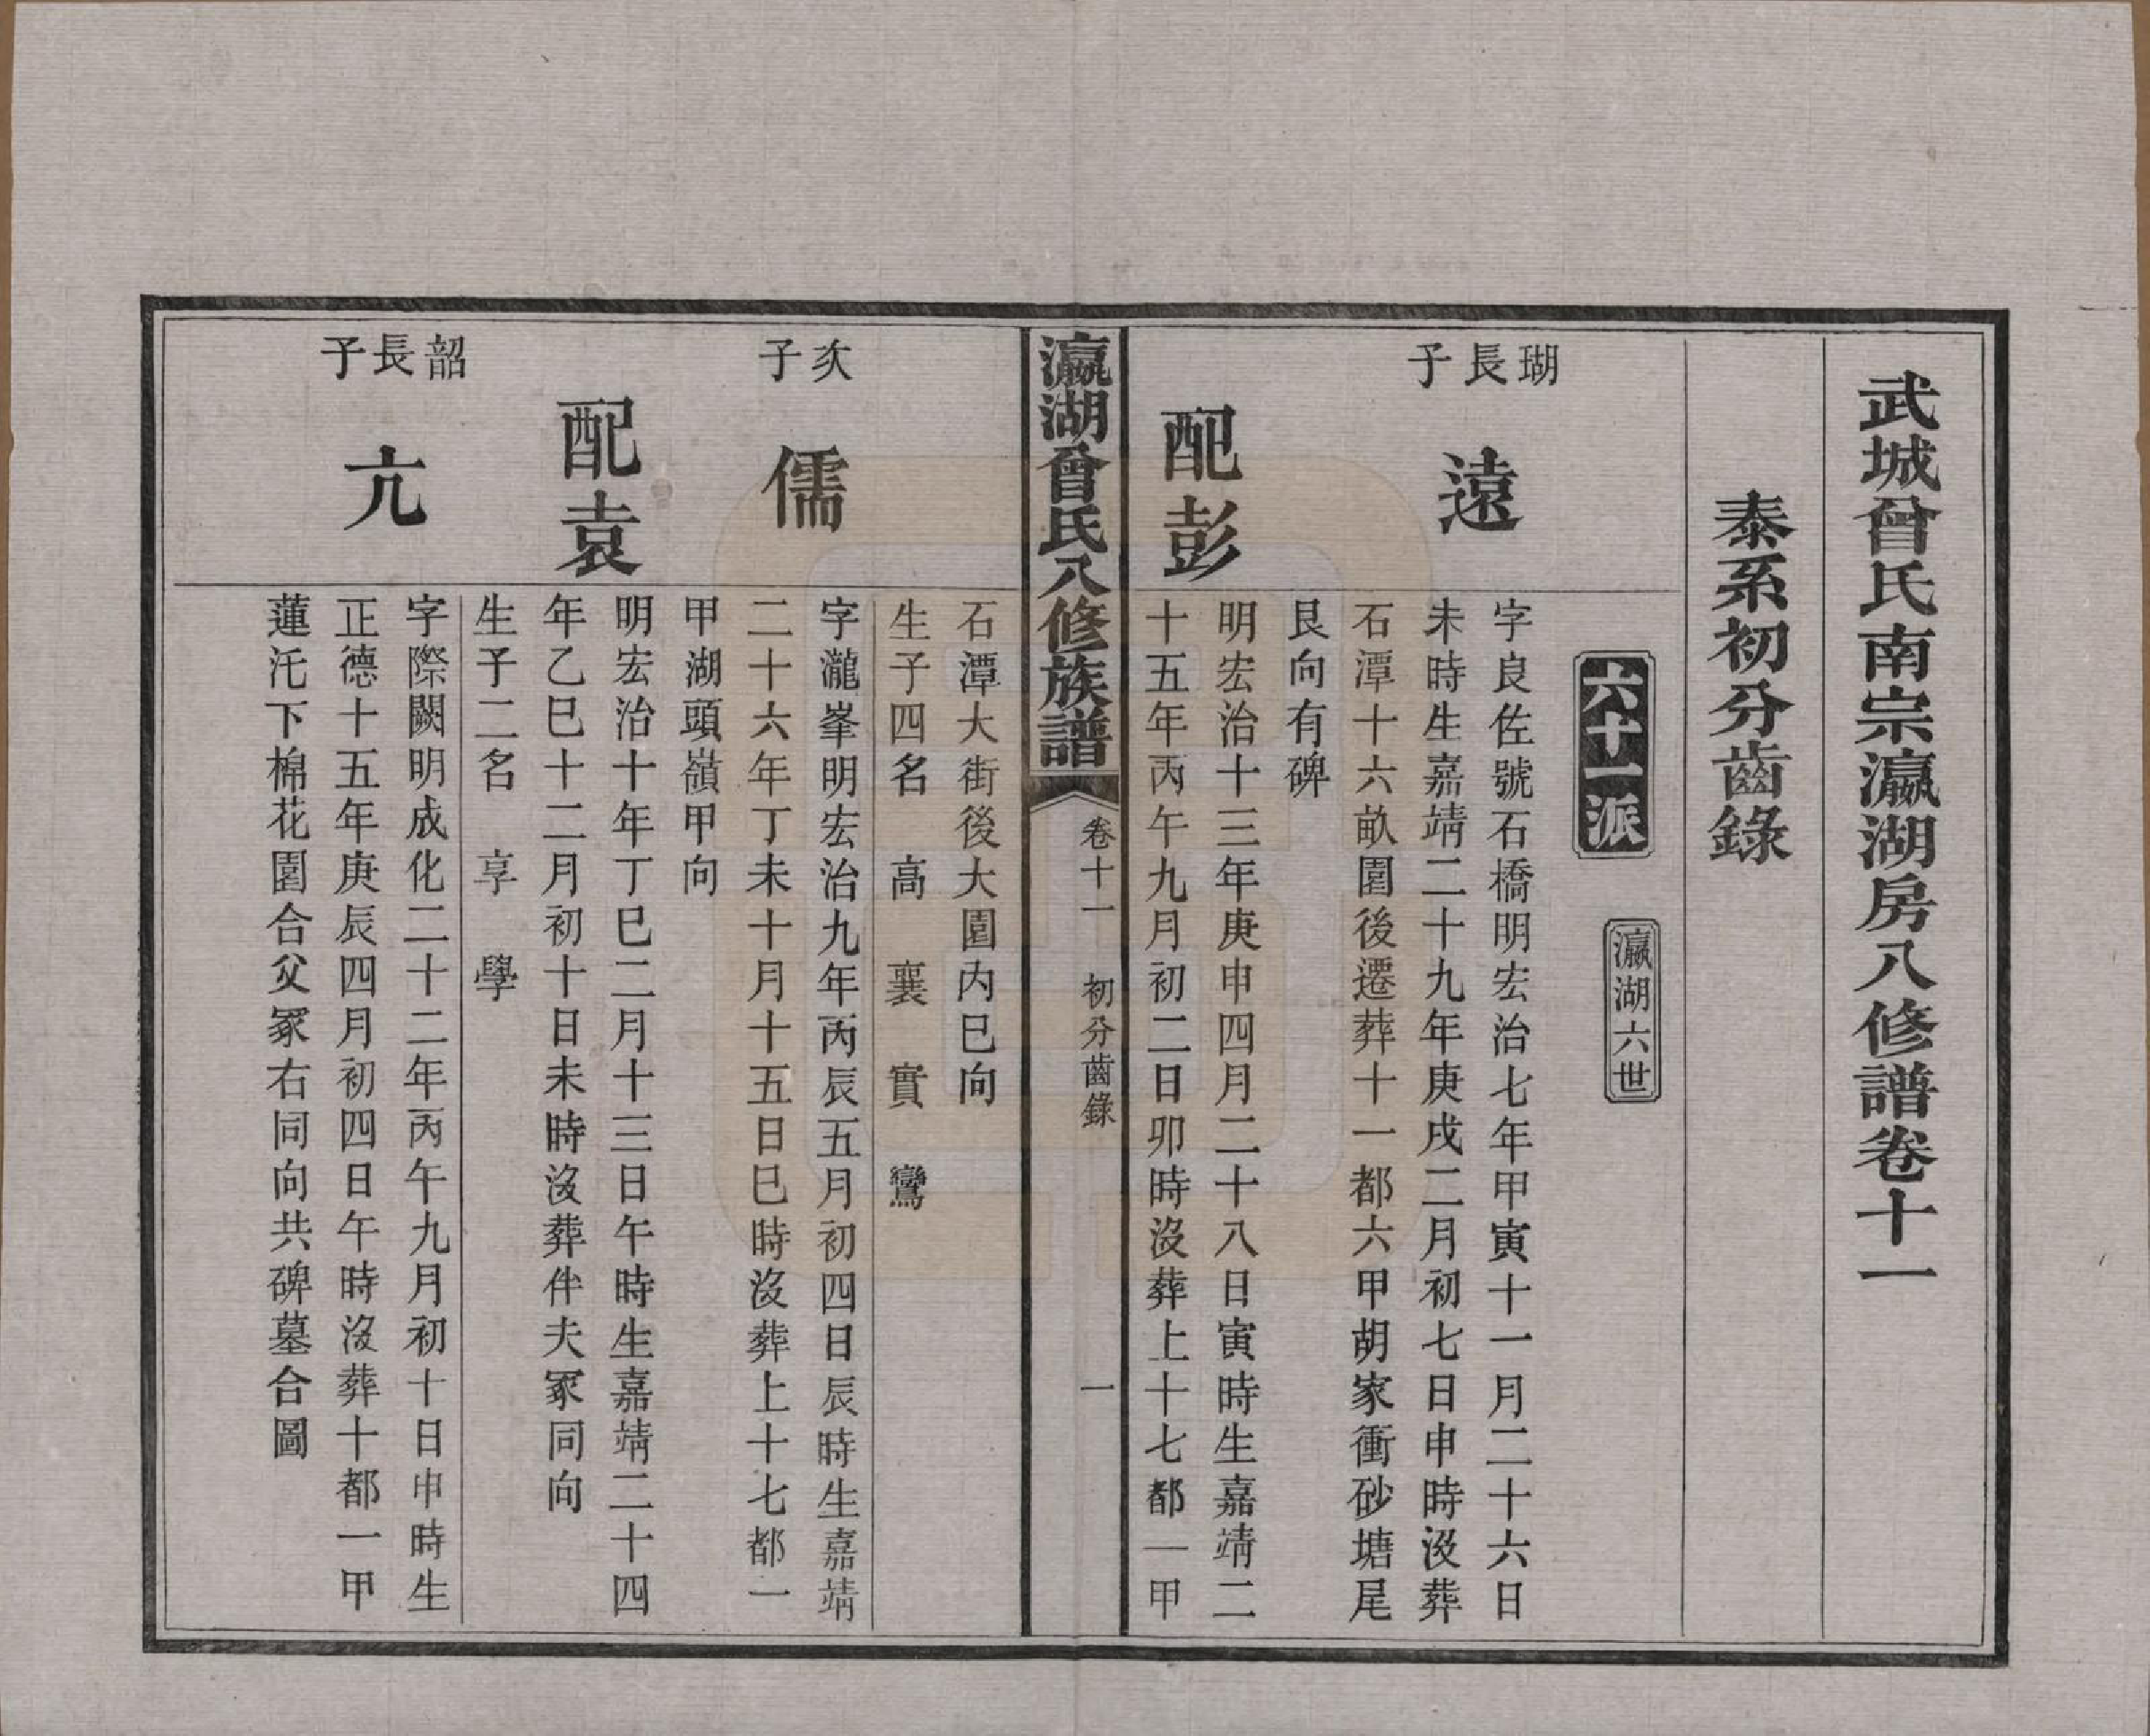 武城曾氏南宗瀛湖房八修譜卷十一
泰系初分齒錄
六十一派
瀛湖六世
瑚長子
遠
字良佐號石橋明宏治七年甲寅十一月二十六日
未時生嘉靖二十九年庚戌二月初七日申時沒葬
石潭十六畝園後遷葬十一都六甲胡家衝砂塘尾
艮向有碑
配彭
明宏治十三年庚申四月二十八日寅時生嘉靖二
十五年丙午九月初二日卯時沒葬上十七都一甲
瀛湖曾氏八修族譜
卷十一
初分齒錄
一
石潭大街後大園内巳向
生子四名 高 襄 實 鸞
次子
儒
字瀧峯明宏治九年丙辰五月初四日辰時生嘉靖
二十六年丁未十月十五日巳時沒葬上十七都一
甲湖頭嶺甲向
配袁
明宏治十年丁巳二月十三日午時生嘉靖二十四
年乙巳十二月初十日未時沒葬伴夫冢同向
生子二名 享 學
韶長子
亢
字際闕明成化二十二年丙午九月初十日申時生
正德十五年庚辰四月初四日午時沒葬十都一甲
蓮汑下棉花園合父冢右同向共碑墓合圖